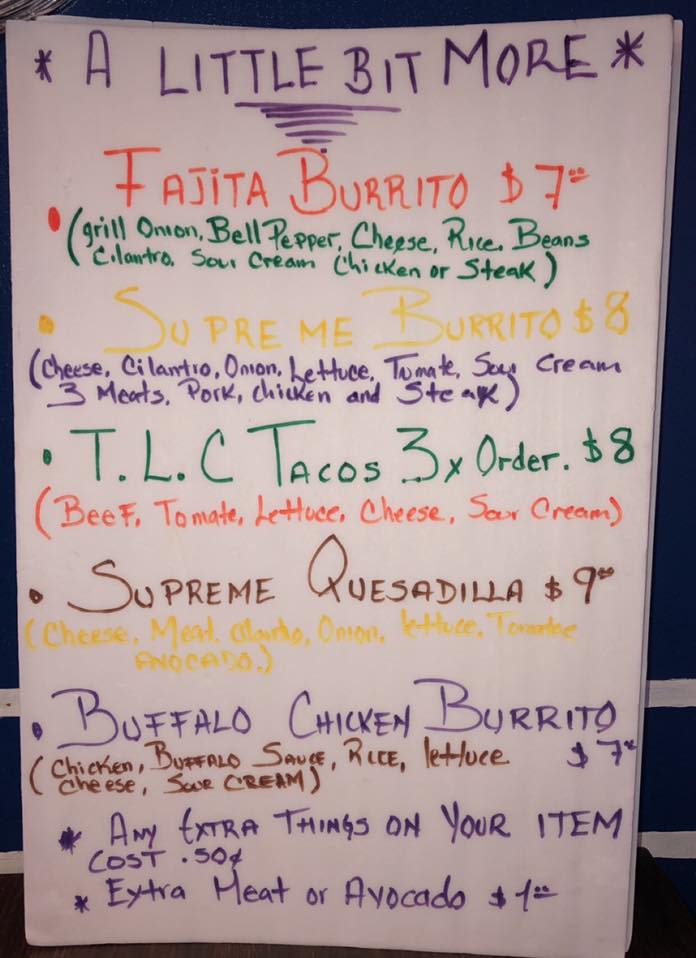 * A LITTLE BIT MORE *
FAJITA BURRITO $7.00
(grill Onion, Bell Pepper, Cheese, Rice. Beans
Cilantro. Sour Cream Chicken or Steak)
SUPREME BURRITO $8
(Cheese, Cilantro, Onion, Lettuce, Tomate, Sour Cream
3 Meats, Pork, chicken and Steak)
T.L.C TACOS 3x Order. $8
(Beef, Tomate, Lettuce, Cheese, Sour Cream)
SUPREME QUESADILLA $9.00
(Cheese, Meat. cilantro, Onion, lettuce, Tomatoe
AVOCADO.)
BUFFALO CHICKEN BURRITO
$7.00
(Chicken, BUFFALO SAUCE, RICE, lettuce
Cheese, SOUR CREAM)
* ANY EXTRA THINGS ON YOUR ITEM
COST .50¢
* Extra Meat or Avocado $1.00